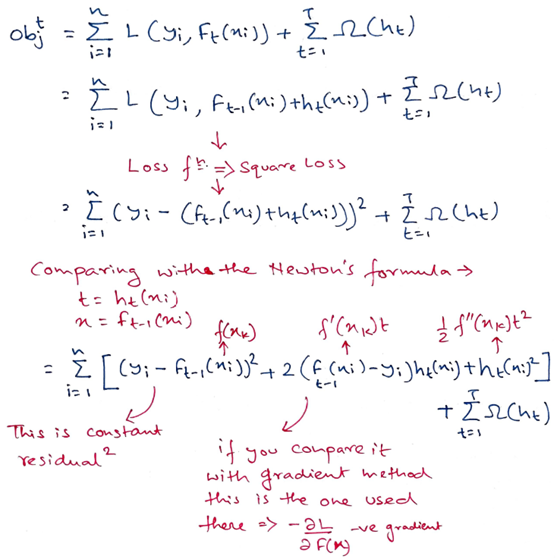 obj^t = Σ_{i=1}^{n} L (y_i, F_t(x_i)) + Σ_{t=1}^{T} Ω(h_t)
= Σ_{i=1}^{n} L (y_i, F_{t-1}(x_i)+h_t(x_i)) + Σ_{t=1}^{T} Ω(h_t)
↓
Loss f^n. => Square Loss
↓
= Σ_{i=1}^{n} (y_i - (F_{t-1}(x_i)+h_t(x_i)))² + Σ_{t=1}^{T} Ω(h_t)
Comparing with the the Newton's formula →
t = h_t(x_i)
x = f_{t-1}(x_i)
f(x_k) f'(x_k)t ½ f''(x_k)t²
= Σ_{i=1}^{n} [(y_i - F_{t-1}(x_i))² + 2(f_{t-1}(x_i) - y_i)h_t(x_i) + h_t(x_i)²]
+ Σ_{t=1}^{T} Ω(h_t)
This is constant
residual²
if you compare it
with gradient method
this is the one used
there => -∂L/∂F(x) -ve gradient